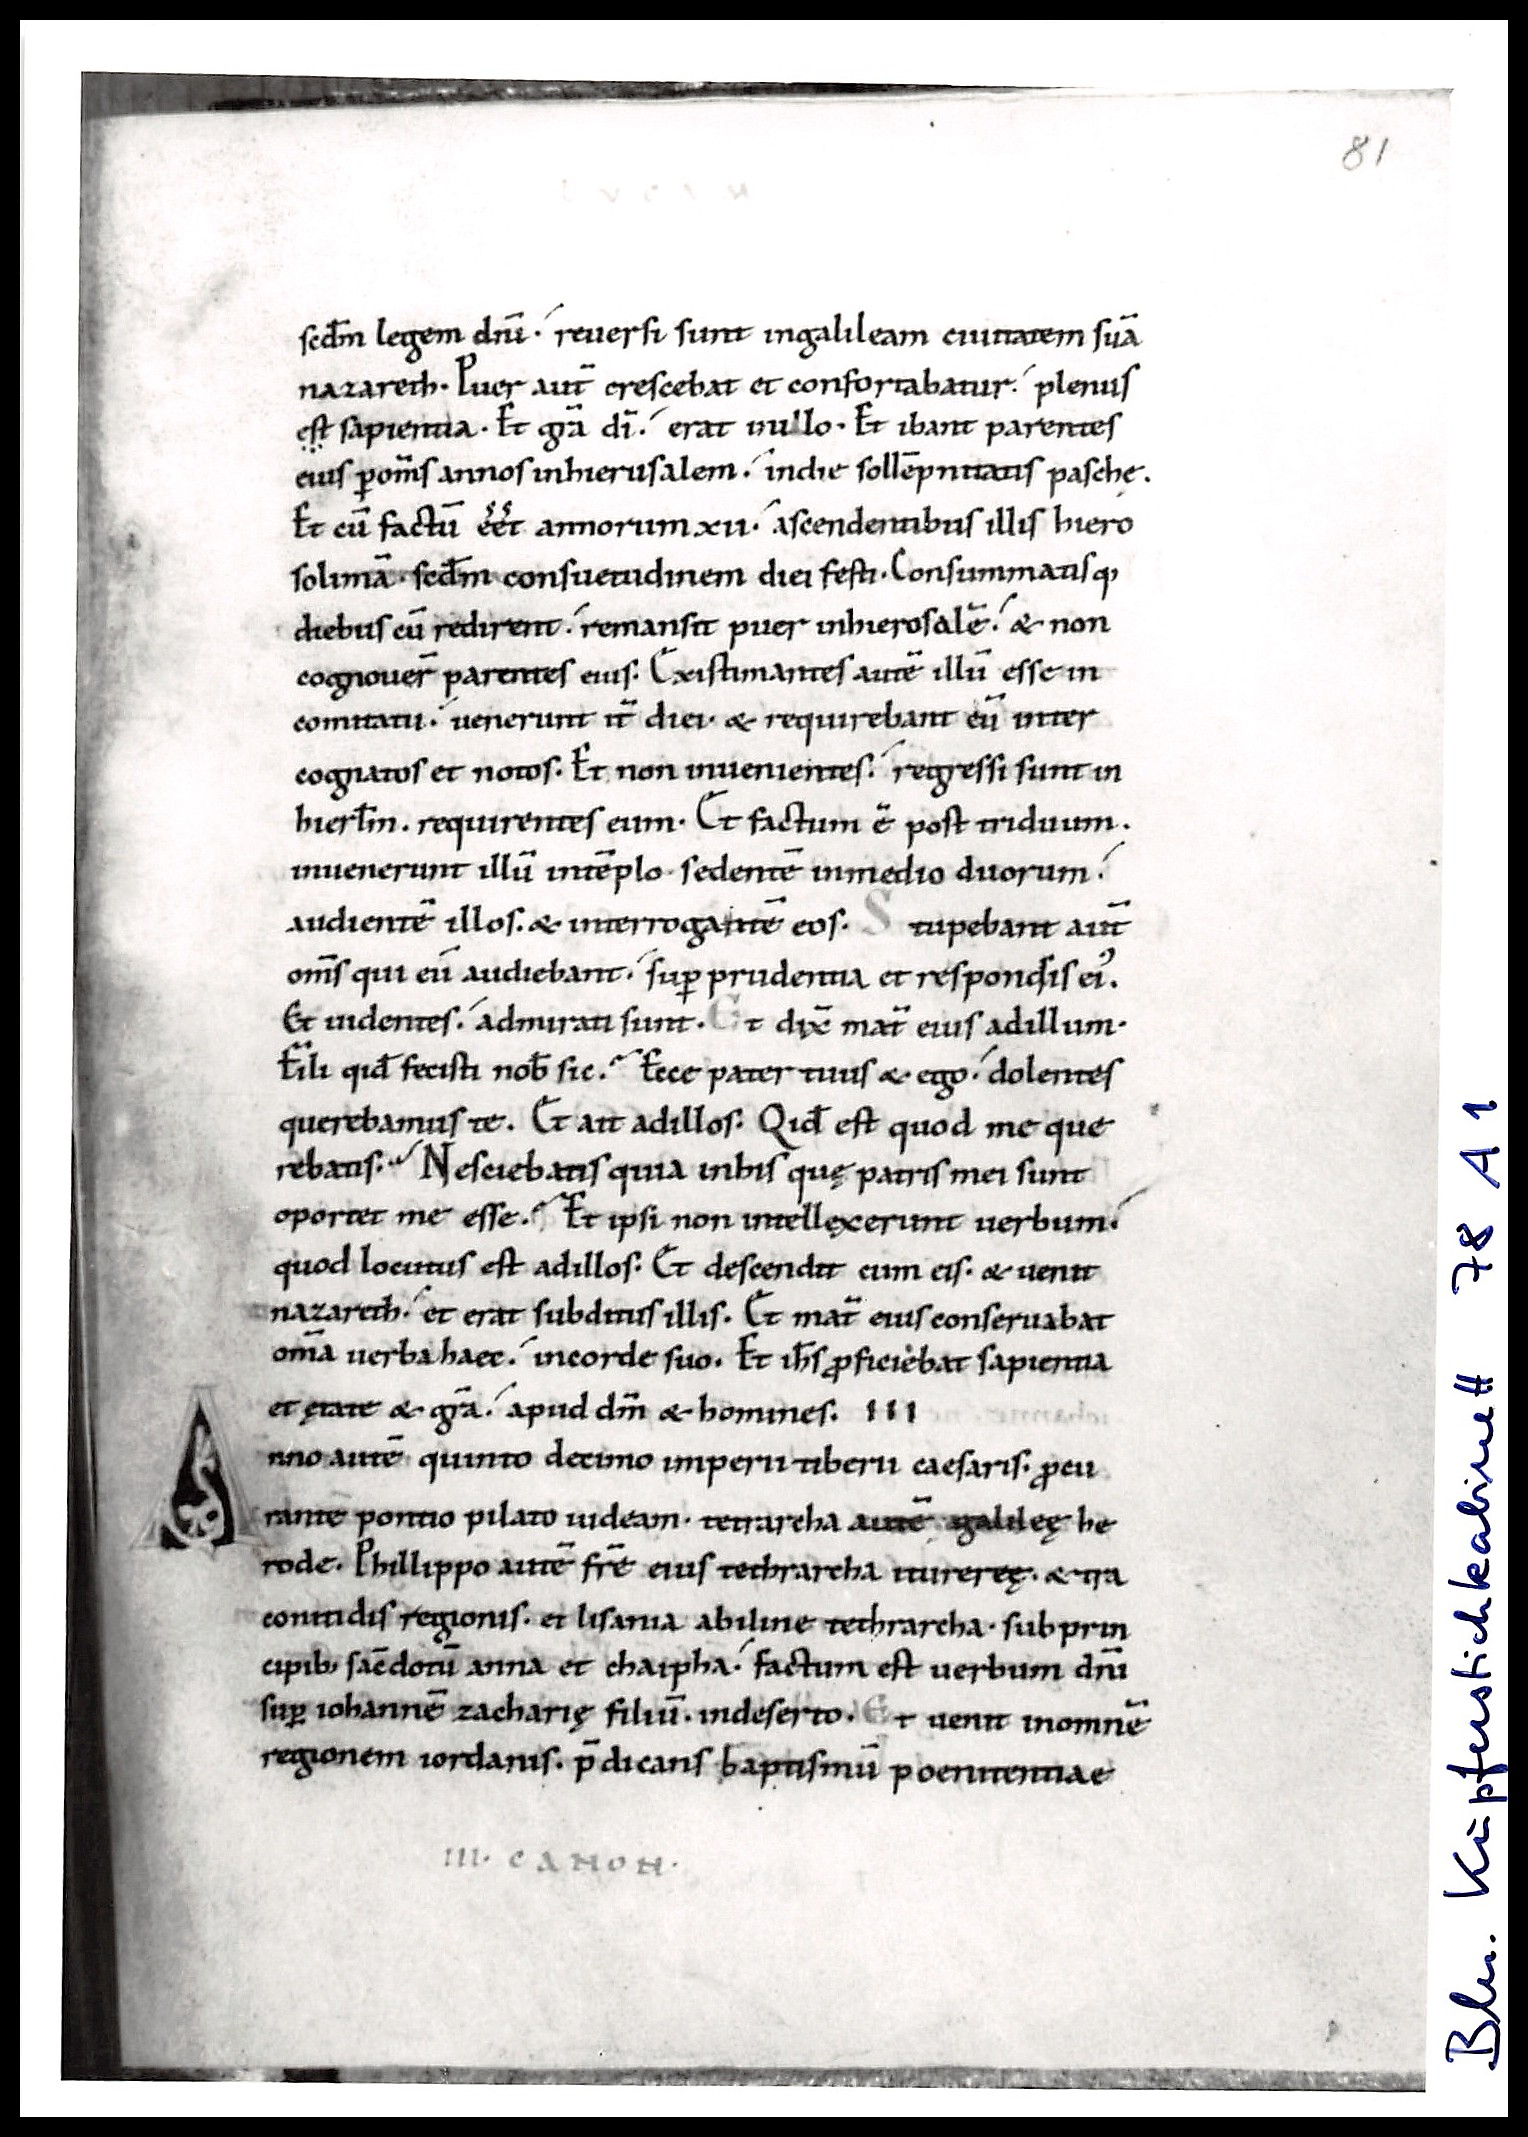 81
scdm̄ legem dn̄i · reuersi sunt ingalileam ciuitatem suā
nazareth · Puer aut̄ crescebat et confortabatur · plenus
est sapientia · Et gr̄a dī · erat inillo · Et ibant parentes
eius ꝑ om̄s annos inhierusalem · indie sollēpnitatis paschę ·
Et cū factū eēt annorum xii · ascendentibus illis hiero
solimā · scdm̄ consuetudinem diei festi · Consummatisq;
diebus cū redirent · remansit puer inhierosalē · & non
cognouer̄ parentes eius · Existimantes autē illū esse in
comitatu · uenerunt it̄ diei · & requirebant eū inter
cognatos et notos · Et non inuenientes · regressi sunt in
hierl̄m · requirentes eum · Et factum ē post triduum ·
inuenerunt illū intēplo · sedentē inmedio duorum ·
audientē illos · & interrogantē eos · Stupebant aut̄
om̄s qui eū audiebant · suꝑ prudentia et responsis ei᾽ ·
Et uidentes · admirati sunt · Et dix̄ mat̄ eius adillum ·
Fili qid̄ fecisti nob̄ sic · Ecce pater tuus & ego · dolentes
querebamus te · Et ait adillos · Qid̄ est quod me que
rebatis · Nesciebatis quia inhis quę patris mei sunt
oportet me esse · Et ipsi non intellexerunt uerbum ·
quod locutus est adillos · Et descendit cum eis · & uenit
nazareth · et erat subditus illis · Et mat̄ eius conseruabat
om̄a uerba haec · incorde suo · Et ih̄s ꝓficiebat sapientia
et ętate & gr̄a · apud dm̄ & homines · III
Anno autē quinto decimo imperii tiberii caesaris · ꝓcu
rante pontio pilato iudeam · tetrarcha autē galileę he
rode · Phillippo autē fr̄e eius tethrarcha itureę · & tra
conitidis regionis · et lisania abiline tethrarcha · sub prin
cipib; sac̄dotū anna et chaipha · factum est uerbum dn̄i
suꝑ iohannē zacharię filiū · indeserto · Et uenit inomnē
regionem iordanis · p̄dicans baptismū poenitentiae
III · CANON ·
Bln. Kupferstichkabinett 78 A 1